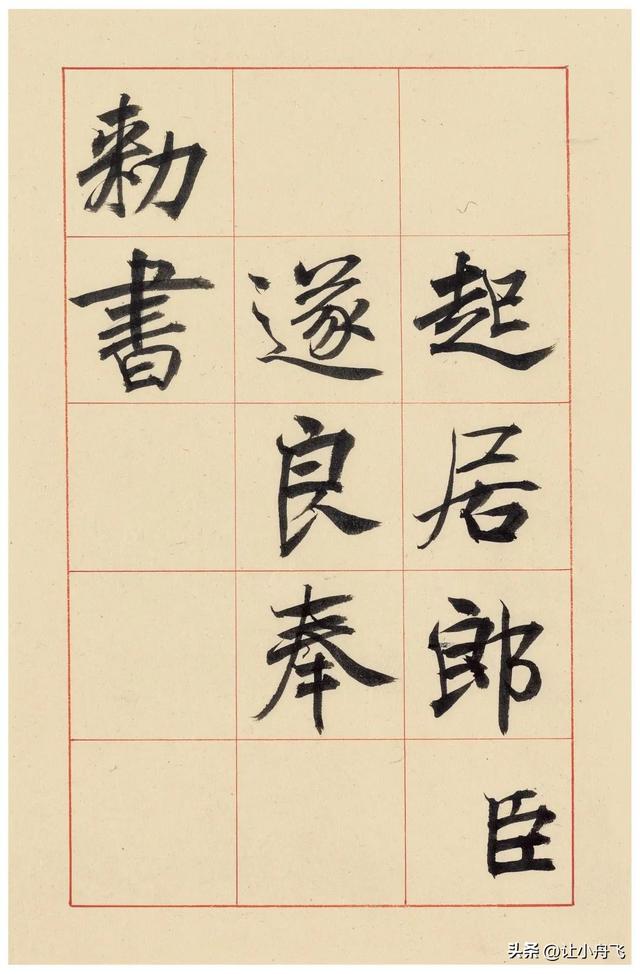 起居郎臣
遂良奉
勑書
头条 @让小舟飞